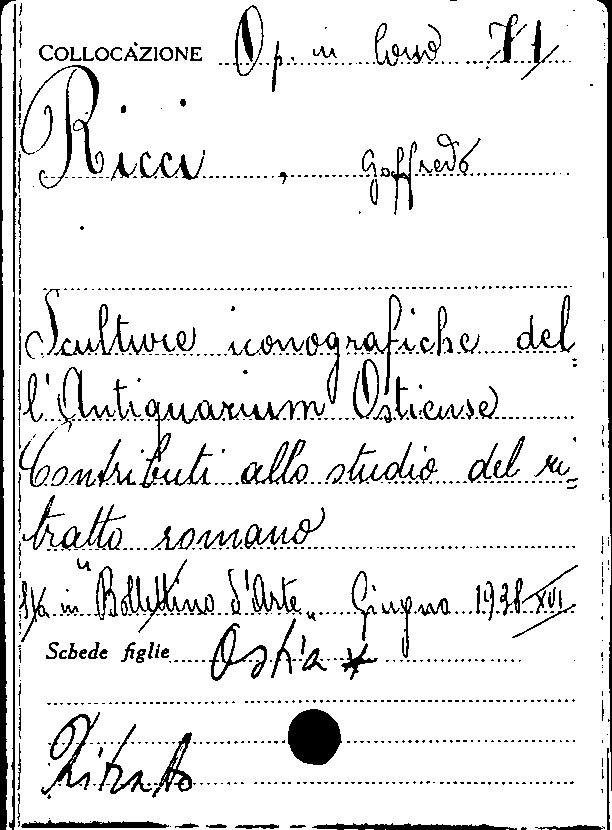 COLLOCAZIONE Op. in Corso
Ricci, Goffredo
Sculture iconografiche del=
l'Antiquarium Ostiense
Contributi allo studio del ri=
tratto romano
in "Bollettino d'Arte" Giugno 1938 XVI
Schede figlie Ostia *
Ritratto